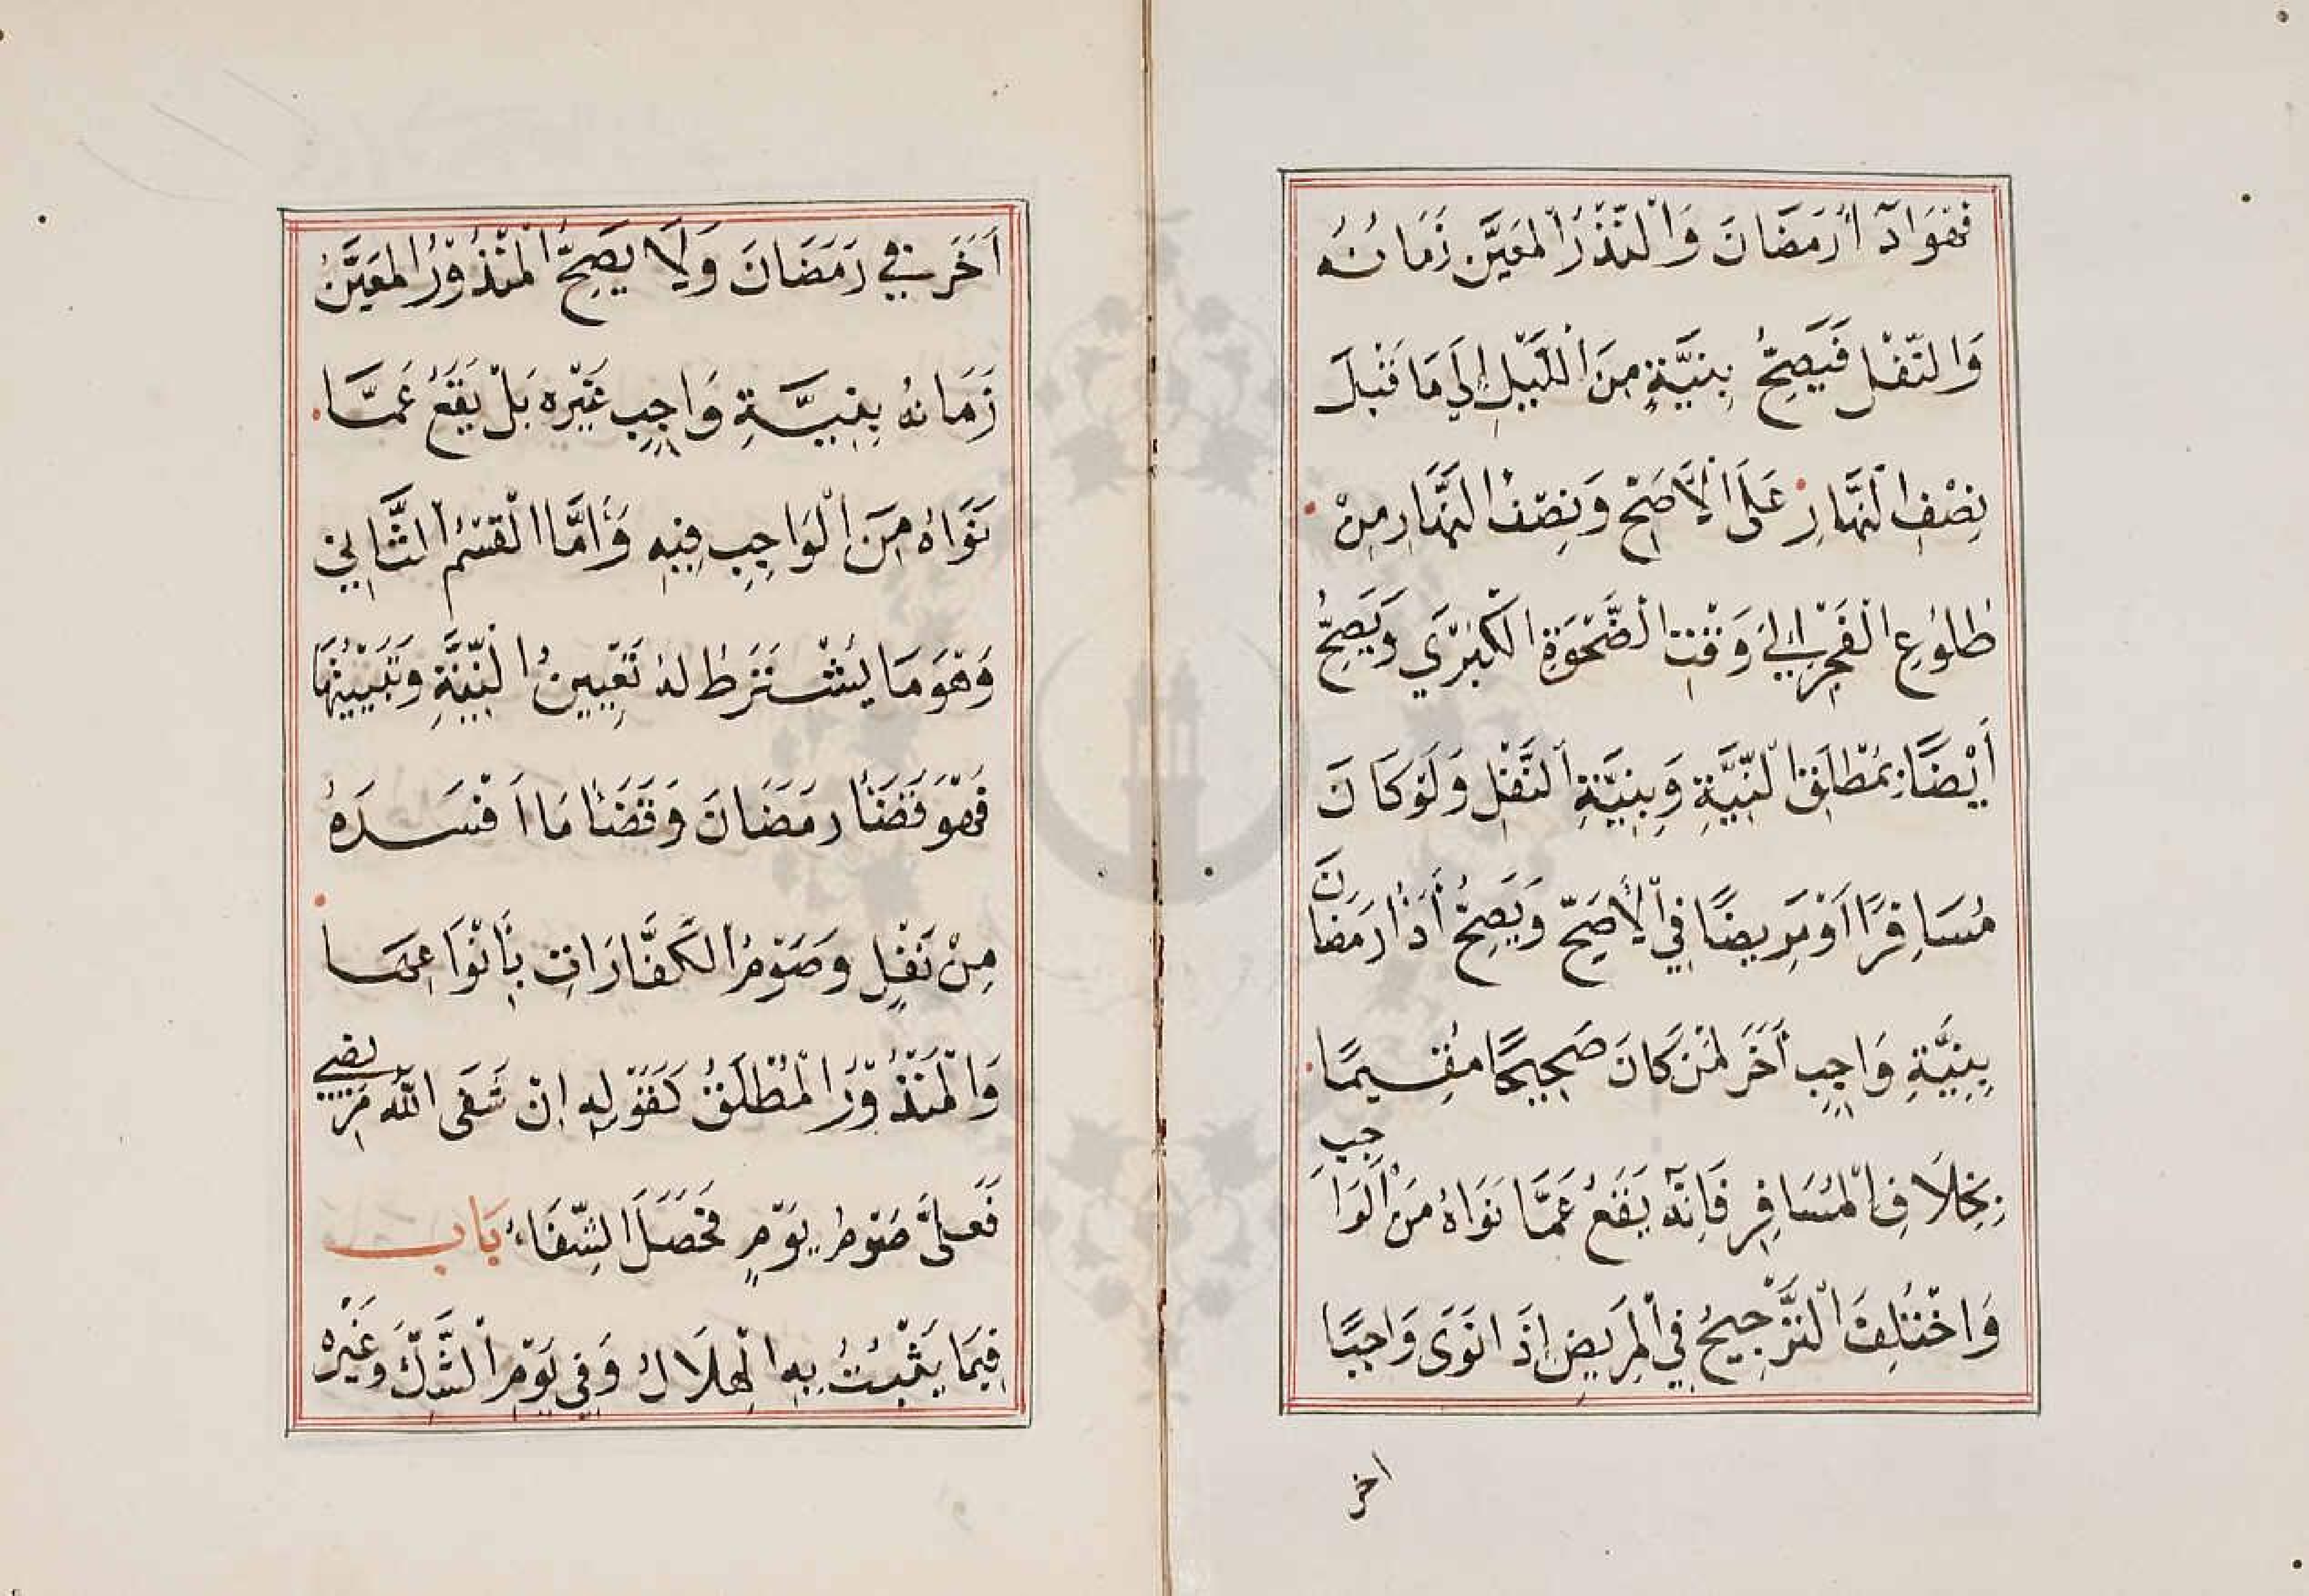 فَهُوَ ادَآ أُرَمَضَانَ وَالْنَّذْرُ الْمُعَيَّنِ زَمَانُهُ
وَالنَّفْلِ فَيَصِحُّ بِنِيَّةٍ مِنَ الْلَّيْلِ إِلَي مَا قَبْلَ
نِصْفِ الْنَّهَارِ عَلَى الْأَصَحِّ وَنِصْفُ النَّهَارِ مِنْ
طُلُوْعِ الْفَجْرِ اِلَي وَقْتِ الْضَّحْوَةِ الْكُبْرَي وَيَصِحُّ
أَيْضًا بِمُطْلَقِ الْنِّيَّةِ وَبِنِيَّةِ الْنَّفْلِ وَلَوْ كَانَ
مُسَافِرًا اَوْ مَرِيضًا فِي الْأَصَحِّ وَيَصِحُّ أَدَأُ رَمَضَانَ
بِنِيَّةِ وَاجِبٍ أَخَرَ لِمَنْ كَانَ صَحِيحًا مُقِيمًا
بِخِلَافِ الْمُسَافِرِ فَاِنَّهُ يَقَعُ عَمَّا نَوَاهُ مَنَ الْوَاجِبِ
وَاخْتُلِفَ الْتَّرْجِيحُ فِي الْمَرِيضِ اِذَا نَوَى وَاجِبًا
اخر
اَخَرَ فِي رَمَضَانَ وَلَا يَصِحُّ الْمَنْذُوْرُ الْمُعَيَّنُ
زَمَانُهُ بِنِيَّةِ وَاجِبِ غَيْرِهِ بَلْ يَقَعُ عَمَّا
نَوَاهُ مِنَ الْوَاجِبِ فِيْهِ وَأَمَّا الْقِسْمُ الثَّانِي
وَهُوَ مَا يُشْتَرَطُ لَهُ تَعْيِينُ الْنِّيَّةِ وَتَبْيِيْتُهَا
فَهُوَ قَضَأُ رَمَضَانَ وَقَضَأُ مَا اَفْسَدَهُ
مِنْ نَفْلٍ وَصَوْمُ الْكَفَّارَاتِ بِأَنْوَاعِهَا
وَالْمَنْذُوْرُ الْمُطْلَقُ كَقَوْلِهِ اِنْ شَفَى اللّٰهُ مَرِيضِي
فَعَلَىَّ صَوْمُ يَوْمٍ فَحَصَلَ الشِّفَاءُ بَاب
فِيمَا يَثْبُتُ بِهِ الْهِلَالُ وَفِي يَوْمِ الْشَّكِّ وَغَيْرِهِ